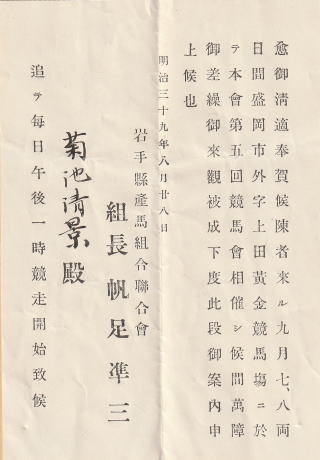 愈御淸適奉賀候陳者來ル九月七、八兩
日間盛岡市外字上田黃金競馬場ニ於
テ本會第五回競馬會相催シ候間萬障
御差繰御來觀被成下度此段御案內申
上候也
明治三十九年八月廿八日
岩手縣產馬組合聯合會
組長帆足準三
菊池淸景殿
追テ每日午後一時競走開始致候